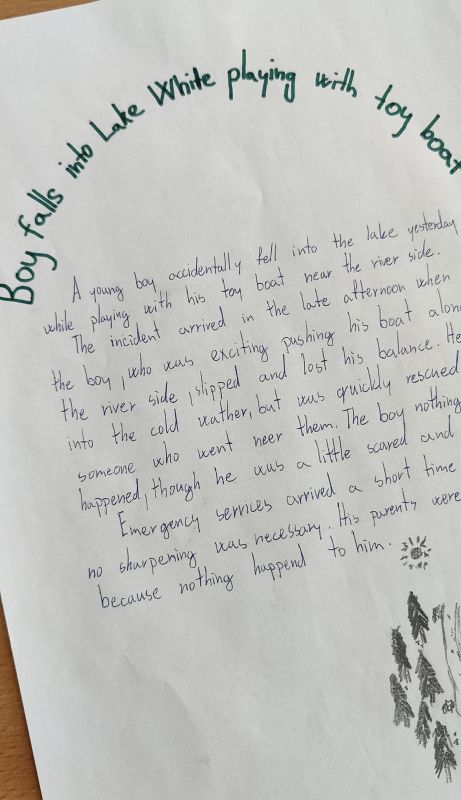 Boy falls into Lake White playing with toy boat
A young boy accidentally fell into the lake yesterday
while playing with his toy boat near the river side.
The incident arrived in the late afternoon when
the boy, who was exciting pushing his boat along
the river side, slipped and lost his balance. He
into the cold wather, but was quickly rescued
someone who went neer them. The boy nothing
happened, though he was a little scared and
Emergency services arrived a short time
no sharpening was necessary. His parents were
because nothing happend to him.